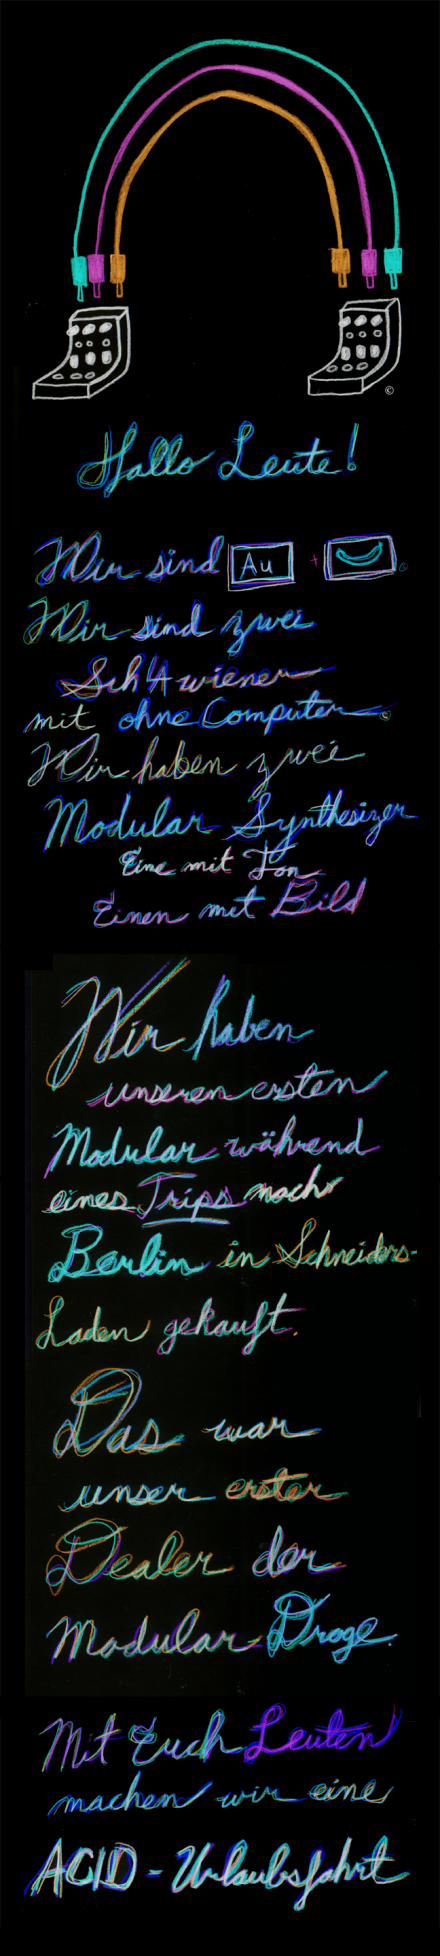 ©
Hallo Leute!
Wir sind Au +
Wir sind zwei
Sch4wiener
mit ohne Computer.
Wir haben zwei
Modular Synthesizer
Eine mit Ton
Einen mit Bild
Wir haben
unseren ersten
Modular während
eines Trips nach
Berlin in Schneiders-
Laden gekauft.
Das war
unser erster
Dealer der
Modular-Droge.
Mit Euch Leuten
machen wir eine
ACID-Urlaubsfahrt